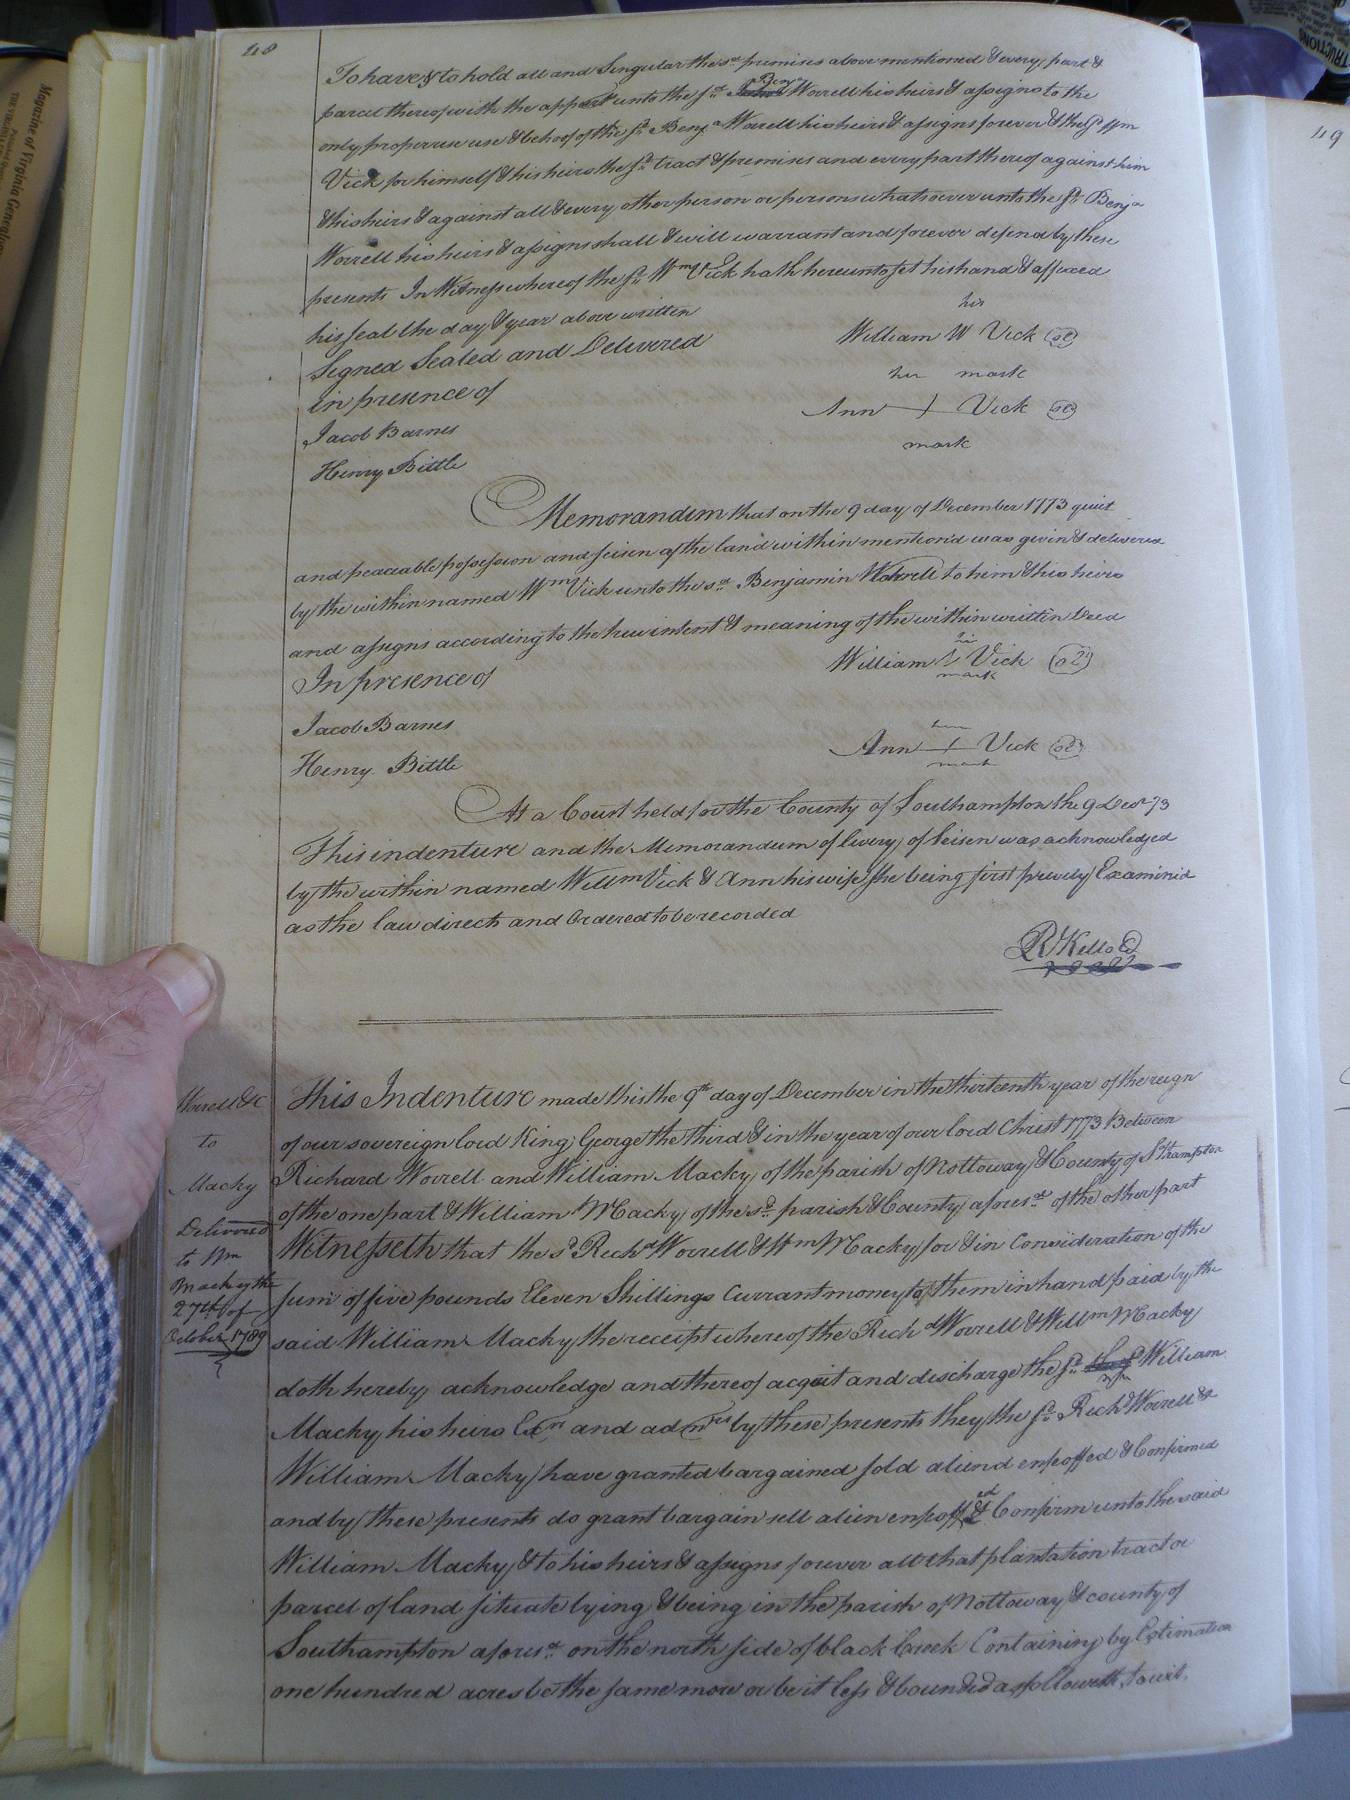 48
To have & to hold all and Singular the sd. premises above mentioned & every part &
parcel thereof with the appart unto the sd. Benja Worrell his heirs & assigns to the
only proper use & behoof of the sd. Benja Worrell his heirs & assigns forever & the sd Wm
Vick for himself & his heirs the sd. tract & premises and every part thereof against him
& his heirs & against all & every other person or persons whatsoever unto the sd. Benja
Worrell his heirs & assigns shall & will warrant and forever defend by these
presents In Witness whereof the sd. Wm Vick hath hereunto set his hand & affixed
his seal the day & year above written
his
Signed Sealed and Delivered
William W Vick
in presence of
her mark
Jacob Barnes
Ann + Vick
Henry Bittle
mark
Memorandum that on the 9 day of December 1773 quiet
and peaceable possession and seisen of the land within mention'd was given & delivered
by the within named Wm Vick unto the sd. Benjamin Worrell to him & his heirs
and assigns according to the true intent & meaning of the within written Deed
In presence of
William Vick
mark
Jacob Barnes
her
Henry Bittle
Ann + Vick
mark
At a Court held for the County of Southampton the 9 Decr 73
This indenture and the Memorandum of livery of Seisen was acknowledged
by the within named Willm Vick & Ann his wife she being first privily Examined
as the law directs and Ordered to be recorded
R Kello
Worrell &c
to
Macky
Delivered
to Wm
Macky the
27th of
October 1789
This Indenture made this the 9th day of December in the thirteenth year of the reign
of our sovereign lord King George the third & in the year of our lord Christ 1773 Between
Richard Worrell and William Macky of the parish of Nottoway & County of S.thampton
of the one part & William Macky of the sd. parish & County aforesd. of the other part
Witnesseth that the sd Richd Worrell & Wm Macky for & in Consideration of the
sum of five pounds Eleven Shillings Currant money to them in hand paid by the
said William Macky the receipt whereof the Richd Worrell & Willm Macky
doth hereby acknowledge and thereof acquit and discharge the sd. William
Macky his heirs Exrs and admrs by these presents they the sd. Richd Worrell &
William Macky have granted bargained sold aliend enfeoffed & Confirmed
and by these presents do grant bargain sell alien enfeoffed & Confirm unto the said
William Macky & to his heirs & assigns forever all that plantation tract or
parcel of land situate lying & being in the parish of Nottoway & county of
Southampton aforesd. on the north side of black Creek Containing by Estimation
one hundred acres be the same more or be it less & bounded as followeth, to wit,
49
Magazine of Virginia Genealogy